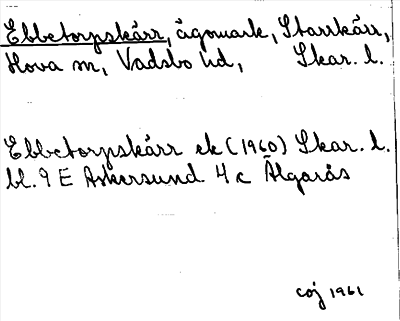 Ebbetorpskärr, ägomark, Starrkärr,
Hova sn, Vadsbo hd, Skar. l.
Ebbetorpskärr ek (1960) Skar. l.
bl. 9 E Askersund 4 c Älgarås
coj 1961